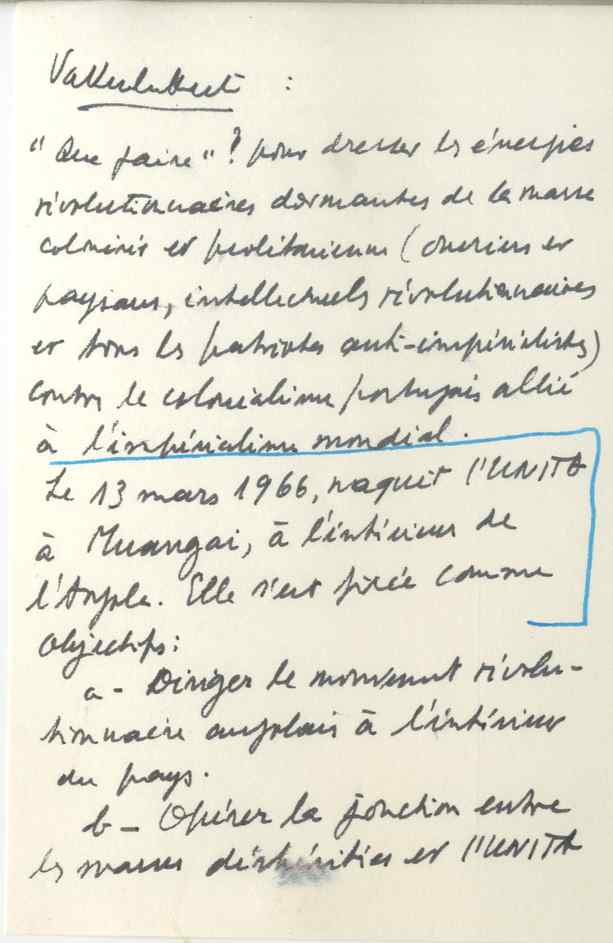 :
"Que faire"? pour dresser les énergies
révolutionnaires dormantes de la masse
colonisée et prolétarienne (ouvriers et
paysans, intellectuels révolutionnaires
et tous les patriotes anti-impérialistes)
contre le colonialisme portugais allié
à l'impérialisme mondial.
Le 13 mars 1966, naquit l'UNITA
à Muangai, à l'intérieur de
l'Angola. Elle s'est fixée comme
objectifs:
a- Diriger le mouvement révolu-
tionnaire angolais à l'intérieur
du pays.
b- Opérer la jonction entre
les masses déshéritées et l'UNITA